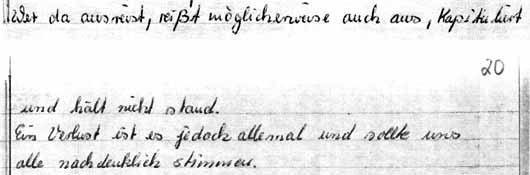 Wer da ausreist, reißt möglicherweise auch aus, kapituliert
20
und hält nicht stand.
Ein Verlust ist es jedoch allemal und sollte uns
alle nachdenklich stimmen.